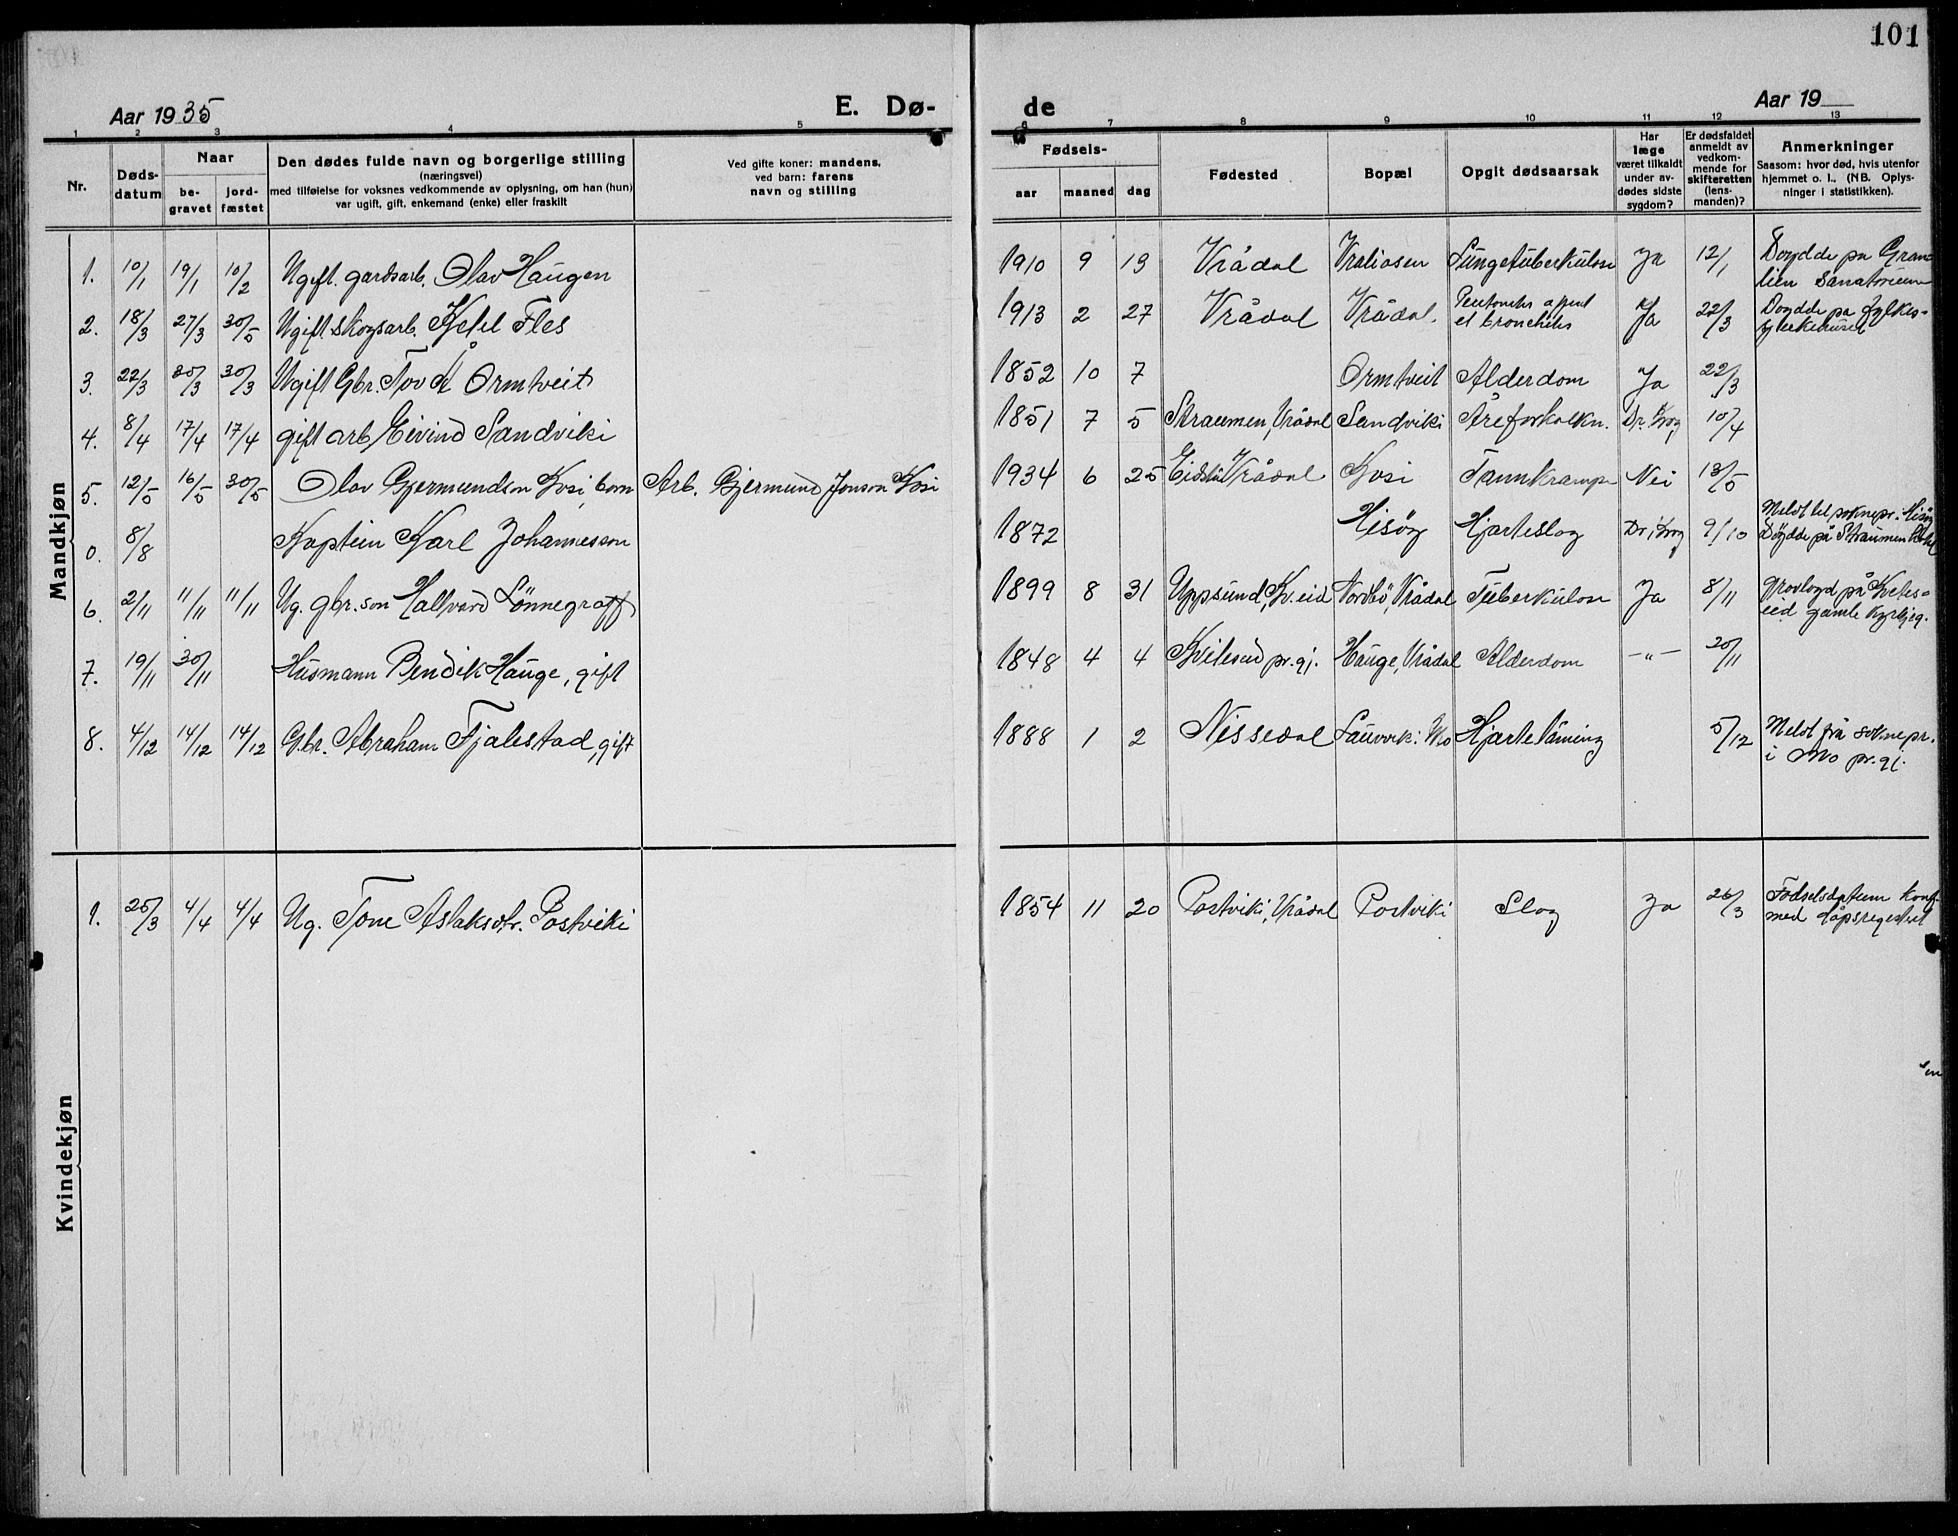 101
Aar 1935 E. Dø- de Aar 19
1 2 3 4 5 6 7 8 9 10 11 12 13
Nr.
Døds-
datum
Naar
be-
gravet
jord-
fæstet
Den dødes fulde navn og borgerlige stilling
(næringsvei)
med tilføielse for voksnes vedkommende av oplysning, om han (hun)
var ugift, gift, enkemand (enke) eller fraskilt
Ved gifte koner: mandens,
ved barn: farens
navn og stilling
Fødsels-
aar maaned dag
Fødested
Bopæl
Opgit dødsaarsak
Har
læge
været tilkaldt
under av-
dødes sidste
sygdom?
Er dødsfaldet
anmeldt av
vedkom-
mende for
skifteretten
(lens-
manden)?
Anmerkninger
Saasom: hvor død, hvis utenfor
hjemmet o. l., (NB. Oplys-
ninger i statistikken).
Mandkjøn
1. 10/1 19/1 10/2 Ugift. gardsarb. Olav Haugen 1910 9 13 Vrådal Vraliosen Lungetuberkulose Ja 12/1 Döydde på Gran-
lien Sanatorium
2. 18/3 27/3 30/5 Ugift skogsarb. Ketil Fles 1913 2 27 Vrådal Vrådal. et bronchitis Ja 22/3 Döydde på fylkes-
sjukehuset
3. 22/3 30/3 30/3 Ugift Gbr. Tov Å Ormtveit 1852 10 7 Ormtveit Alderdom Ja 22/3
4. 8/4 17/4 17/4 gift arb Eivind Sandviki 1851 7 5 Straumen, Vrådal Sandviki Åreforkalkn. Dr. Krog 10/4
5. 12/5 16/5 30/5 Olav Gjermundson Kosi, born Arb. Gjermund Jonson Kosi 1934 6 25 Vrådal Kosi Tannkrampe Nei 13/5
0. 8/8 Kaptein Karl Johannesson 1872 Hisöy Hjarteslag Dr. Krog 9/10 Meldt til soknepr. i Hisöy
Döydde på Straumen Hotel
6. 2/11 11/11 11/11 Ug. gbr. son Hallvard Lönnegraff 1899 8 31 Uppsund, Kv.eid Nordbö, Vrådal Tuberkulose Ja 8/11 gravlagd på Kvites-
eid gamle kyrkjeg.
7. 19/11 30/11 Husmann Bendik Hauge, gift 1848 4 4 Kviteseid pr.gj. Hauge, Vrådal Alderdom -"- 20/11
8. 4/12 14/12 14/12 Gbr. Abraham Fjalestad, gift 1888 1 2 Nissedal Lauvvik i Mo Hjartelåming 5/12 Meldt frå soknepr.
i Mo pr. gj.
Kvindekjøn
1. 25/3 4/4 4/4 Ug. Tone Aslaksdtr. Postviki 1854 11 20 Postviki, Vrådal Postviki Slag Ja 26/3 Födselsdatum konf.
med dåpsregistret